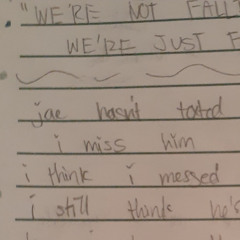 "WE'RE NOT FALL
WE'RE JUST F
jae hasn't texted
i miss him
i think i messed
i still think he's